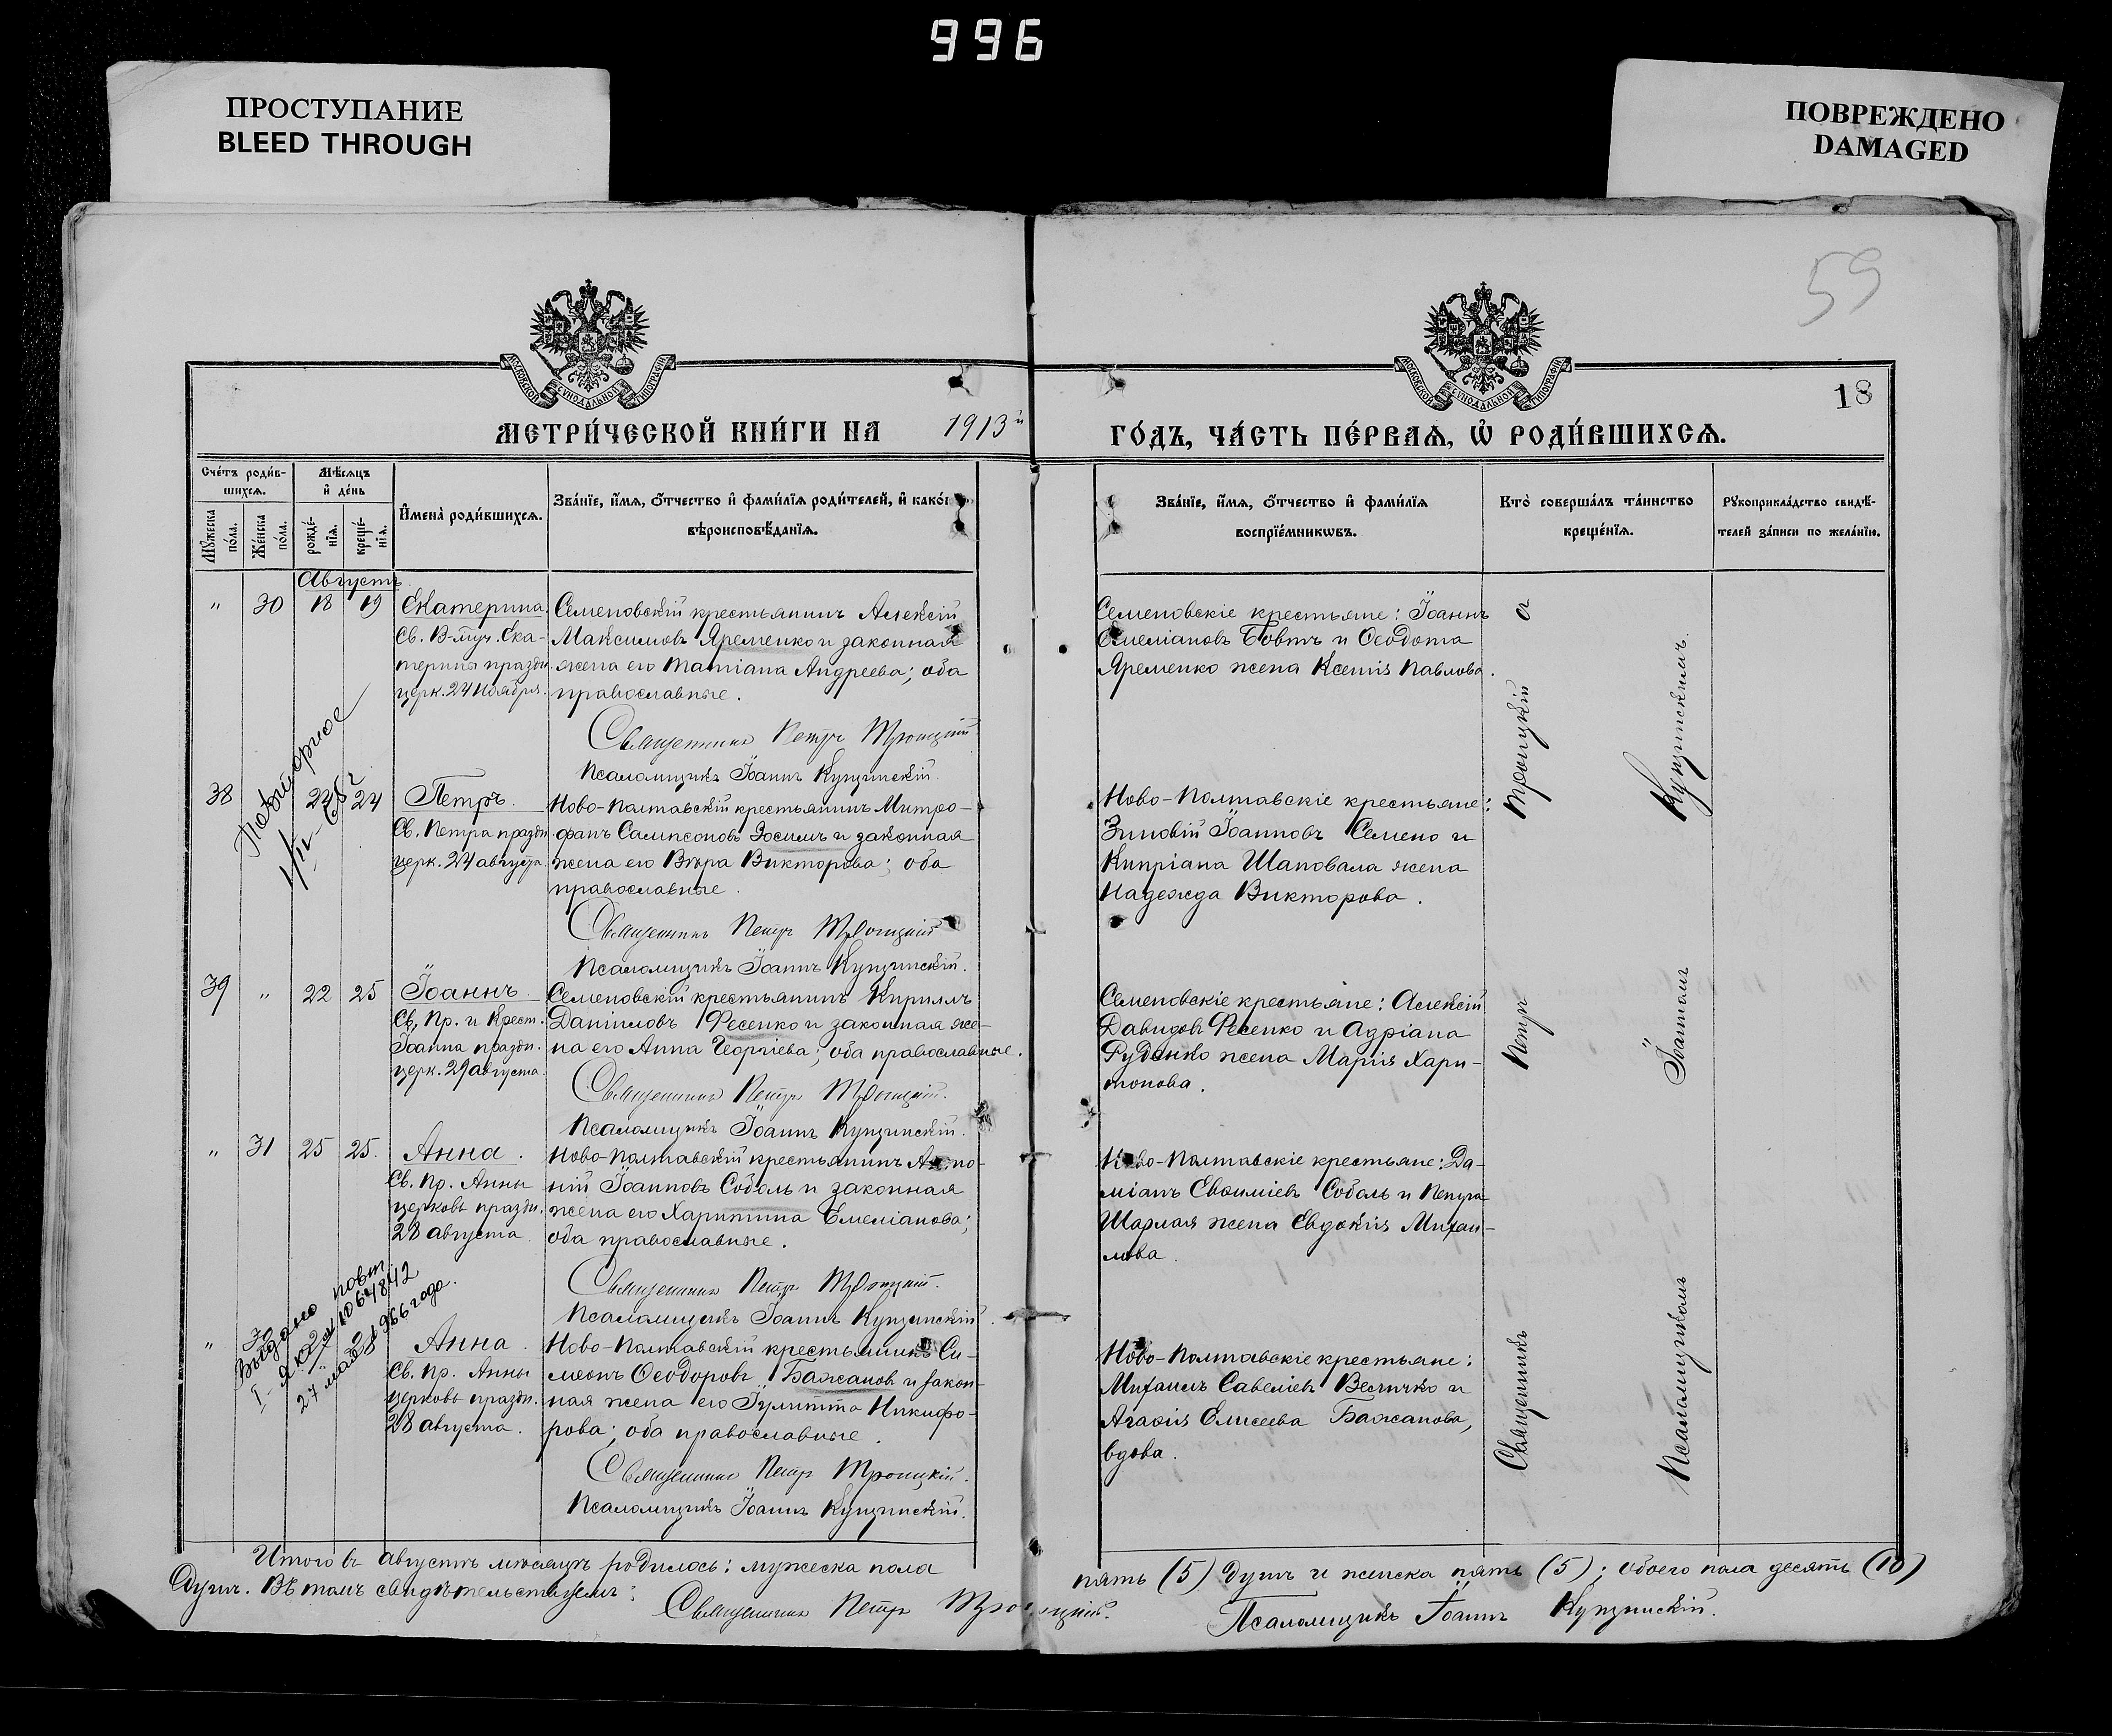 996
ПРОСТУПАНИЕ
BLEED THROUGH
ПОВРЕЖДЕНО
DAMAGED
59
18
МОСКОВСКОЙ СѴНОДАЛЬНОЙ ТИПОГРАФІИ
МОСКОВСКОЙ СѴНОДАЛЬНОЙ ТИПОГРАФІИ
МЕТРИ́ЧЕСКОЙ КНИ́ГИ НА 1913й ГО́ДЪ, ЧА́СТЬ ПЕ́РВАЯ, Ѡ҆ РОДИ́ВШИХСЯ.
Сче́тъ роди́в-
шихся.
Мѣ́сяцъ
и҆ де́нь
Мꙋ́жеска
по́ла.
Же́нска
по́ла.
рожде́-
нїя.
креще́-
нїя.
И҆мена̀ роди́вшихся.
Зва́нїе, и҆́мя, ѻ҆́тчество и҆ фами́лїя роди́телей, и҆ како́гѡ
вѣроисповѣ́данїя.
Зва́нїе, и҆́мя, ѻ҆́тчество и҆ фами́лїя
воспрїе́мникѡвъ.
Кто̀ соверша́лъ та́инство
креще́нїя.
Рꙋкоприкла́дство свидѣ́-
телей за́писи по жела́нїю.
Августъ.
" 30 18 19 Екатерина.
Св. В-муч. Ека-
терины праздн.
церк. 24 Ноября.
Семеновскій крестьянинъ Алексій
Максимовъ Яременко и законная
жена его Татіана Андреева; оба
православные.
Священникъ Петръ Троицкій
Псаломщикъ Іоаннъ Купчинскій.
Семеновскіе крестьяне: Іоаннъ
Емеліановъ Бовтъ и Ѳеодота
Яременко жена Ксенія Павлова.
Повторное
38 22 24 Петръ.
Св. Петра праздн.
церк. 24 августа.
Ново-Полтавскій крестьянинъ Митро-
фанъ Сампсоновъ Зосимъ и законная
жена его Вѣра Викторова; оба
православные.
Священникъ Петръ Троицкій
Псаломщикъ Іоаннъ Купчинскій.
Ново-Полтавскіе крестьяне:
Зиновій Іоанновъ Семено и
Кипріана Шаповала жена
Надежда Викторова.
39 " 22 25 Іоаннъ
Св. Пр. и Крест.
Іоанна праздн.
церк. 29 августа.
Семеновскій крестьянинъ Кириллъ
Даніиловъ Фесенко и законная же-
на его Анна Георгіева; оба православные.
Священникъ Петръ Троицкій.
Псаломщикъ Іоаннъ Купчинскій.
Семеновскіе крестьяне: Алексій
Давидовъ Фесенко и Адріана
Руденко жена Марія Хари-
тонова.
" 31 25 25. Анна.
Св. Пр. Анны
церковь праздн.
28 августа
Ново-Полтавскій крестьянинъ Анто-
ній Іоанновъ Соболь и законная
жена его Харитина Емеліанова;
оба православные.
Священникъ Петръ Троицкій.
Псаломщикъ Іоаннъ Купчинскій.
Ново-Полтавскіе крестьяне: Да-
міанъ Евѳиміевъ Соболь и Петра
Шарлая жена Евдокія Михаи-
лова.
Выдано повт.
I-ЯЮ № 1064842
27 мая 1966 года.
" Анна.
Св. Пр. Анны
церковь праздн.
28 августа.
Ново-Полтавскій крестьянинъ Си-
меонъ Ѳеодоровъ Бажановъ и закон-
ная жена его Іулитта Никифо-
рова; оба православные.
Священникъ Петръ Троицкій.
Псаломщикъ Іоаннъ Купчинскій.
Ново-Полтавскіе крестьяне:
Михаилъ Савеліевъ Величко и
Агаѳія Елисеева Бажанова,
вдова.
Священникъ Петръ Троицкій съ
Псаломщикомъ Іоанномъ Купчинскимъ.
Итого въ августѣ мѣсяцѣ родилось: мужеска пола пять (5) душъ и женска пять (5); обоего пола десять (10)
душъ. Въ томъ свидѣтельствуемъ:
Священникъ Петръ Троицкій. Псаломщикъ Іоаннъ Купчинскій.